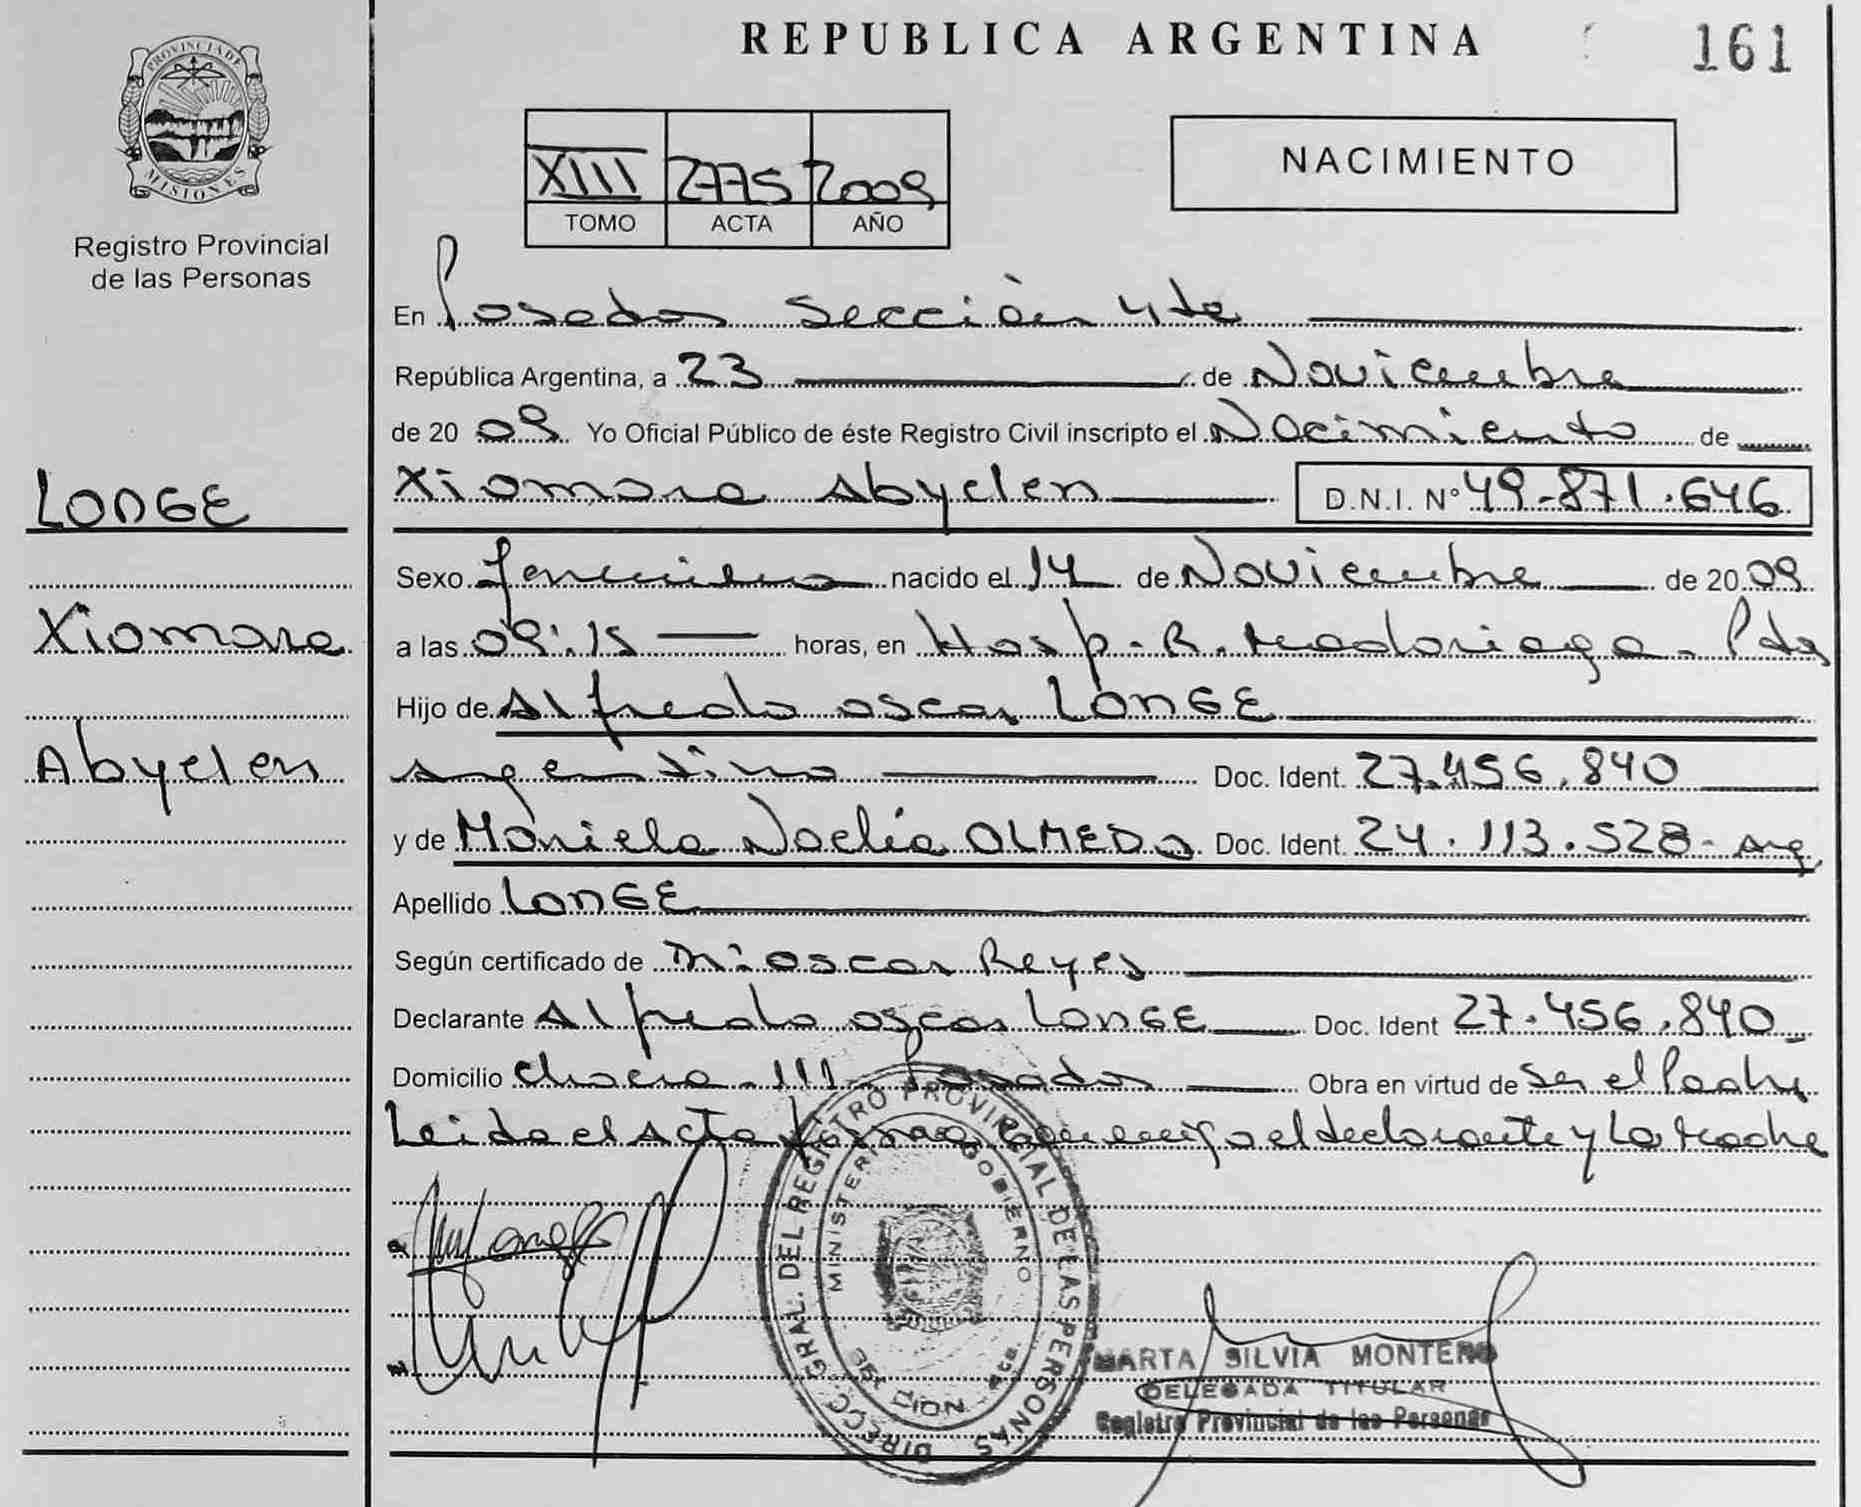 REPUBLICA ARGENTINA
161
PROVINCIA DE
MISIONES
Registro Provincial
de las Personas
XIII 2775 2009
TOMO ACTA AÑO
NACIMIENTO
En Posadas Sección 4ta
República Argentina, a 23 de Noviembre
de 20 09 Yo Oficial Público de éste Registro Civil inscripto el Nacimiento de
LONGE
Xiomara Abyelen D.N.I. Nº 49.871.646
Sexo femenino nacido el 14 de Noviembre de 20 09
Xiomara
a las 09:15 horas, en Hosp. R. Madariaga. Pdas
Hijo de Alfredo Oscar LONGE
Abyelen
argentino Doc. Ident. 27.456.840
y de Mariela Noelia OLMEDO Doc. Ident. 24.113.528- Arg
Apellido LONGE
Según certificado de Oscar Reyes
Declarante Alfredo Oscar LONGE Doc. Ident 27.456.840
Domicilio Chacra 111 Posadas Obra en virtud de Ser el Padre
Leida el Acta firman conmigo el declarante y La Madre
DIRECC. GRAL. DEL REGISTRO PROVINCIAL DE LAS PERSONAS
MINISTERIO GOBIERNO
SECCION 4ta.
MARTA SILVIA MONTERO
DELEGADA TITULAR
Registro Provincial de las Personas